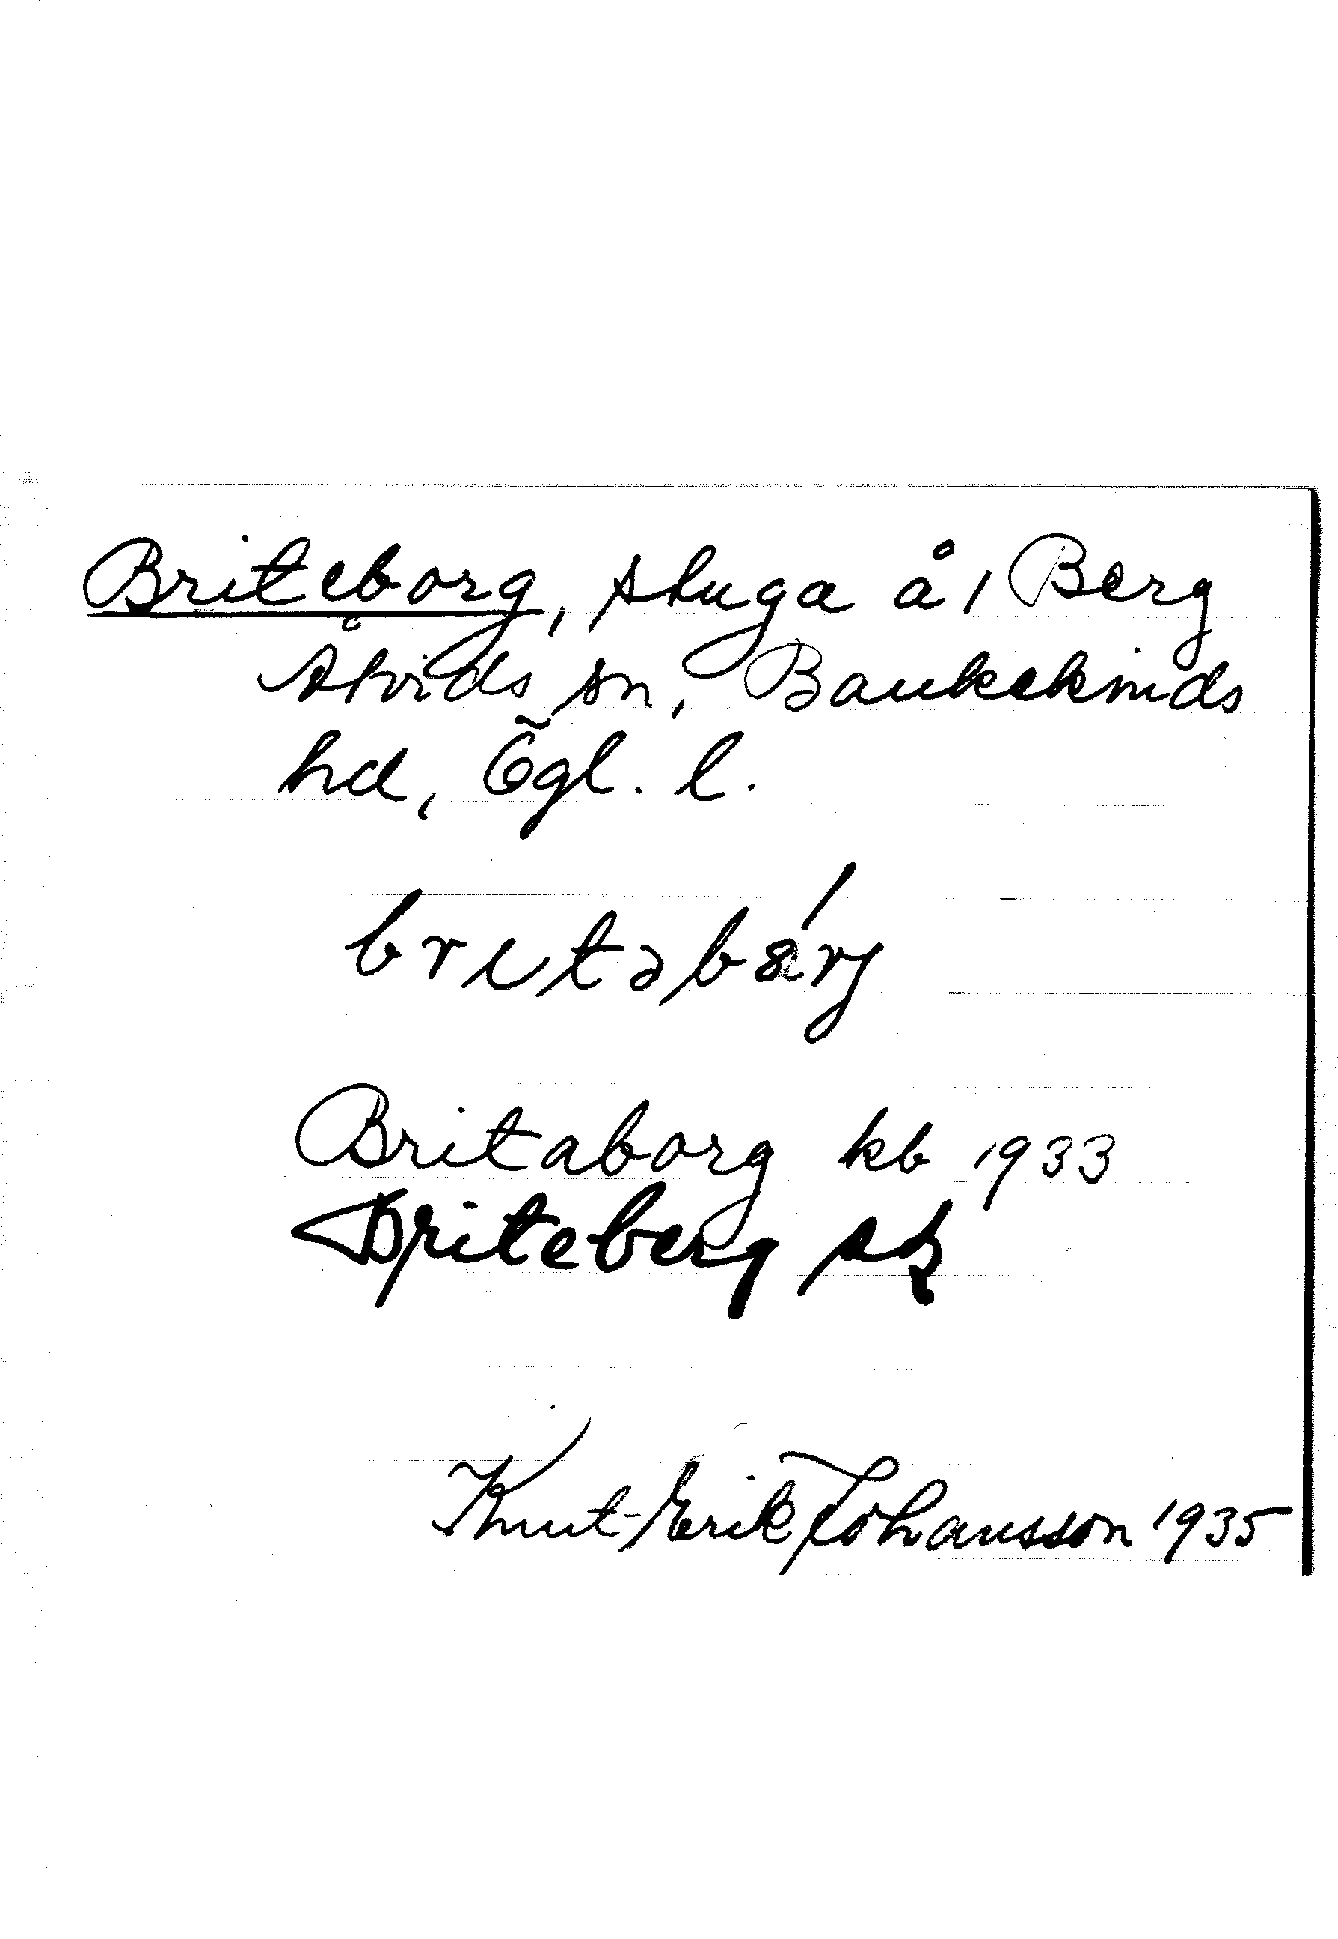 Briteborg, stuga å 1 Berg
Åtvids sn, Bankekinds
hd, Ögl. l.
Britaborg kb 1933
Briteberg sk
Knut-Erik Johansson 1935